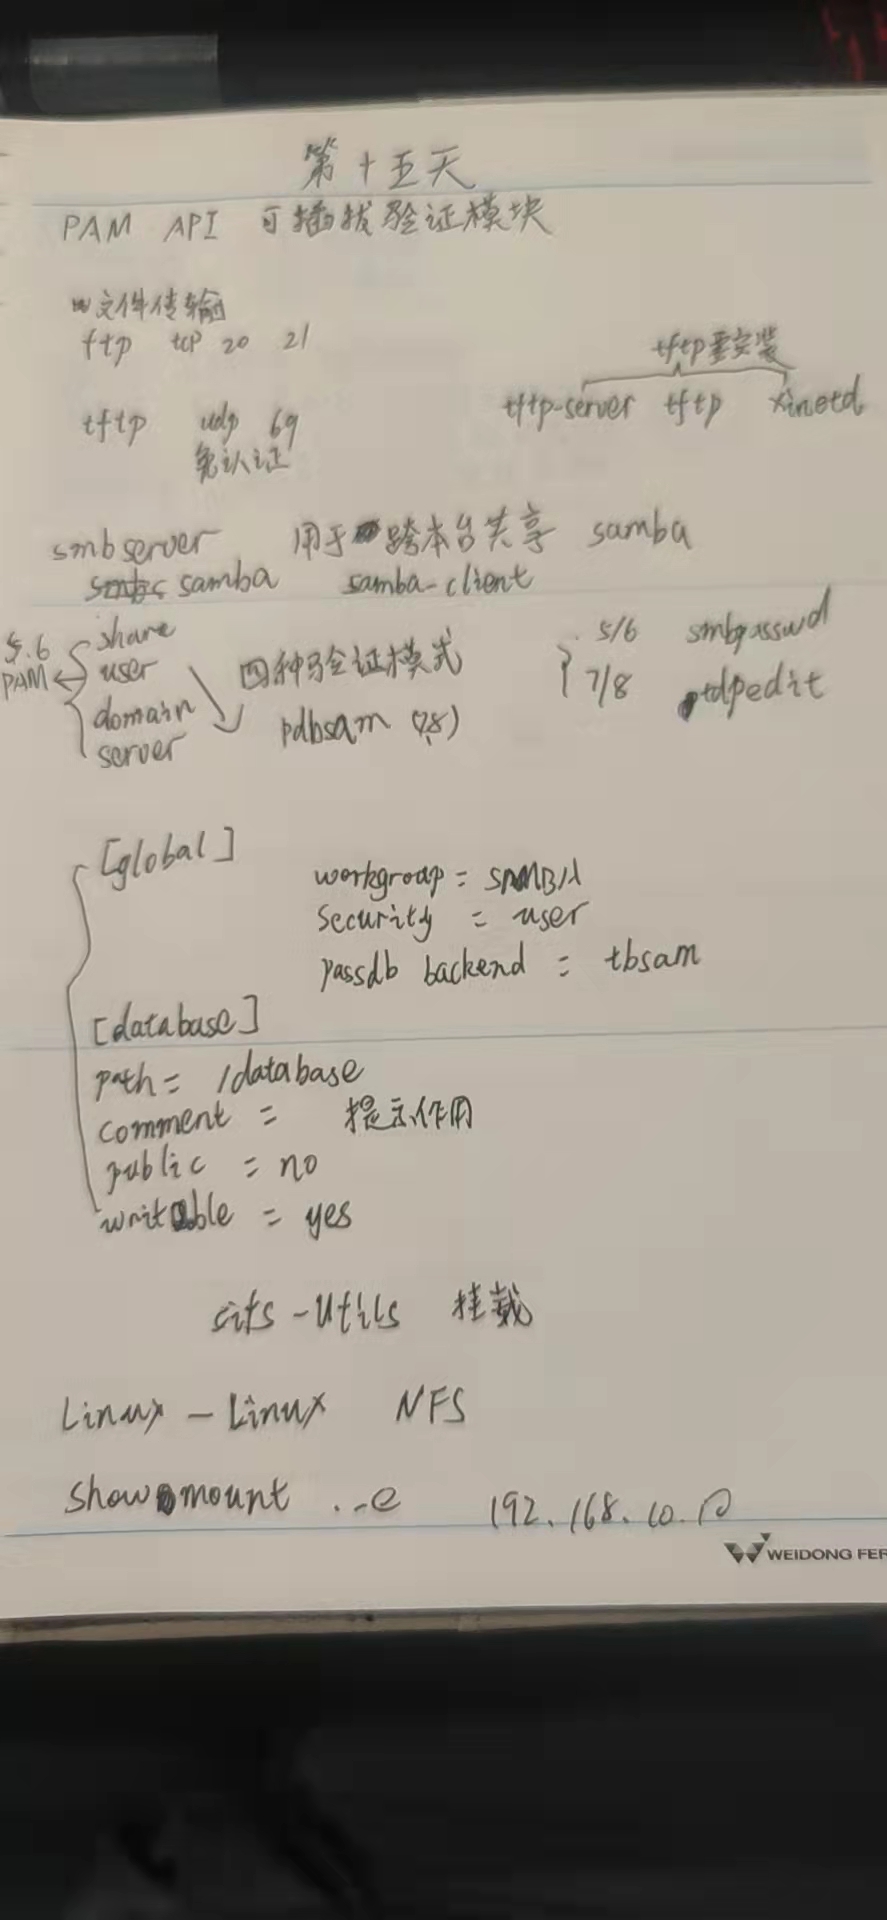 第十五天
PAM API 可插拔验证模块
文件传输
ftp tcp 20 21
tftp要安装
tftp-server tftp xinetd
tftp udp 69
免认证
smb server 用于跨本台共享 samba
samba samba-client
5.6 share
PAM user 四种验证模式
domain pdbsam (7.8)
server
5/6 smbpasswd
7/8 tdpedit
[global]
workgroup = SAMBA
security = user
passdb backend = tbsam
[database]
path = /database
comment = 提示作用
public = no
writable = yes
cifs-utils 挂载
Linux - Linux NFS
showmount --e 192.168.10.10
WEIDONG FER